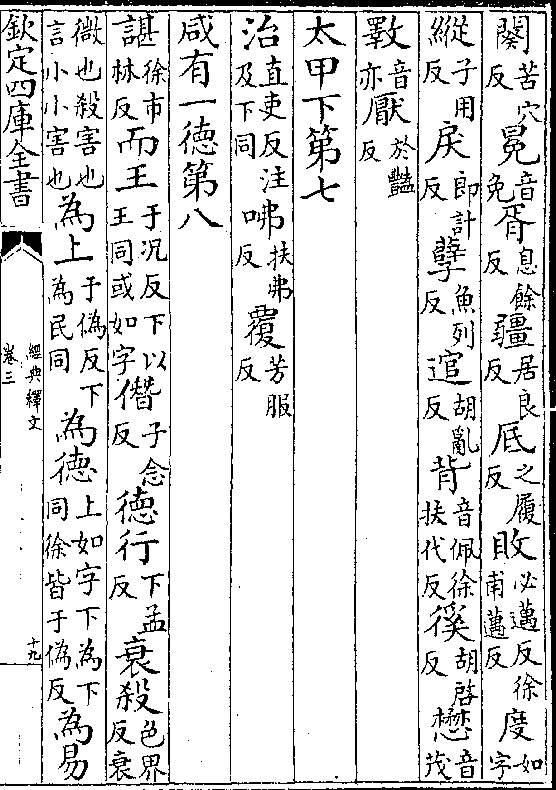 闋苦穴反冕音免胥息餘反疆居良反底之履反敗必邁反徐甫邁反度如字
縱子用反戾即計反孽魚列反逭胡亂反背音佩徐扶代反徯胡啓反懋音茂
斁音亦厭於豔反
太甲下第七
治直吏反注及下同咈扶弗反覆芳服反
咸有一德第八
諶徐市林反而王于况反下以王同或如字僭子念反德行下孟反衰殺色界反衰
微也殺害也言小小害也為上于偽反下為民同為德上如字下為下同徐皆于偽反為易
欽定四庫全書
經典釋文
卷三
十九